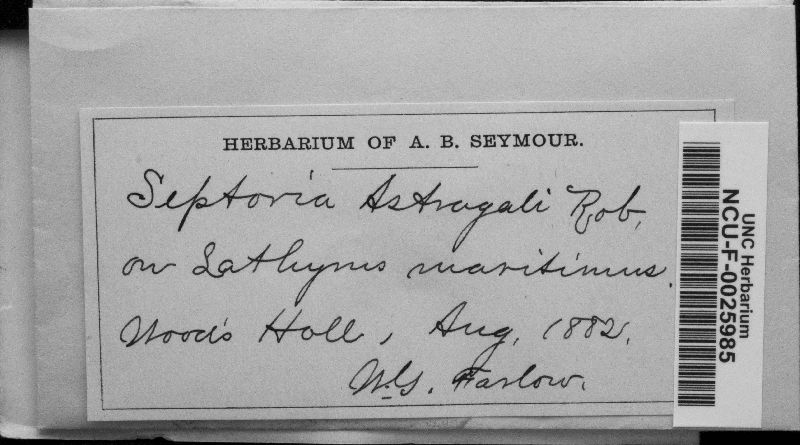 HERBARIUM OF A. B. SEYMOUR.
Septoria Astragali Rob.
on Lathyrus maritimus.
Wood's Holl, Aug. 1882.
W.G. Farlow.
UNC Herbarium
NCU-F-0025985